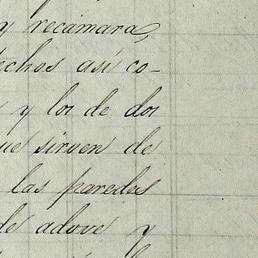 y recámara,
echos así co-
y los de dos
ue sirven de
las paredes
de adove y